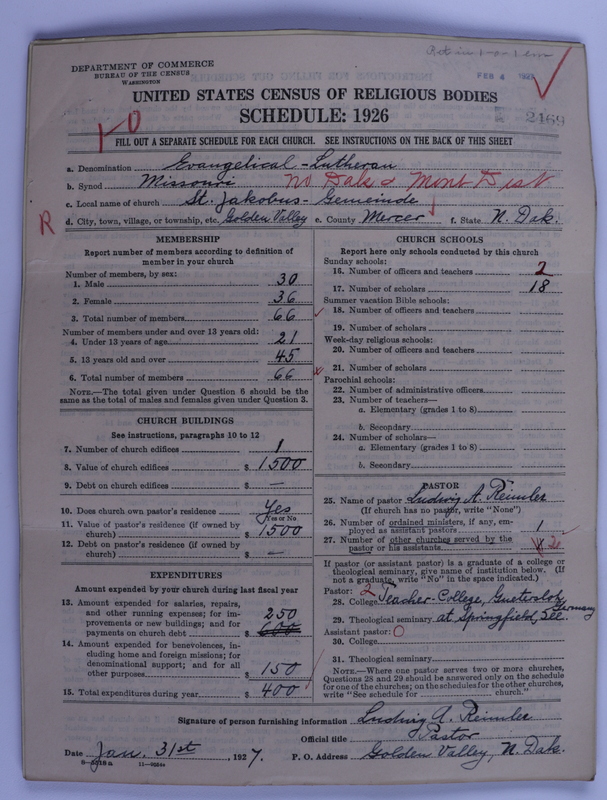 DEPARTMENT OF COMMERCE
BUREAU OF THE CENSUS
WASHINGTON
FEB 4 1927
UNITED STATES CENSUS OF RELIGIOUS BODIES
SCHEDULE: 1926
2469
FILL OUT A SEPARATE SCHEDULE FOR EACH CHURCH. SEE INSTRUCTIONS ON THE BACK OF THIS SHEET
a. Denomination Evangelical-Lutheran
b. Synod Missouri No Dak & Mont Dist
c. Local name of church St. Jakobus-Gemeinde
R
d. City, town, village, or township, etc. Golden Valley e. County Mercer f. State N. Dak.
MEMBERSHIP
Report number of members according to definition of
member in your church
Number of members, by sex:
1. Male 30
2. Female 36
3. Total number of members 66
Number of members under and over 13 years old:
4. Under 13 years of age 21
5. 13 years old and over 45
6. Total number of members 66
NOTE.—The total given under Question 6 should be the
same as the total of males and females given under Question 3.
CHURCH BUILDINGS
See instructions, paragraphs 10 to 12
7. Number of church edifices 1
8. Value of church edifices $ 1500
9. Debt on church edifices $ —
10. Does church own pastor's residence? Yes
Yes or No
11. Value of pastor's residence (if owned by
church) $ 1500
12. Debt on pastor's residence (if owned by
church) $ —
EXPENDITURES
Amount expended by your church during last fiscal year
13. Amount expended for salaries, repairs,
and other running expenses; for im-
provements or new buildings; and for
payments on church debt $ 250
600
14. Amount expended for benevolences, in-
cluding home and foreign missions; for
denominational support; and for all
other purposes $ 150
15. Total expenditures during year $ 400
CHURCH SCHOOLS
Report here only schools conducted by this church
Sunday schools:
16. Number of officers and teachers 2
17. Number of scholars 18
Summer vacation Bible schools:
18. Number of officers and teachers
19. Number of scholars
Week-day religious schools:
20. Number of officers and teachers
21. Number of scholars
Parochial schools:
22. Number of administrative officers
23. Number of teachers—
a. Elementary (grades 1 to 8)
b. Secondary
24. Number of scholars—
a. Elementary (grades 1 to 8)
b. Secondary
PASTOR
25. Name of pastor Ludwig A. Reimler
(If church has no pastor, write "None")
26. Number of ordained ministers, if any, em-
ployed as assistant pastors 1
27. Number of other churches served by the
pastor or his assistants
If pastor (or assistant pastor) is a graduate of a college or
theological seminary, give name of institution below. (If
not a graduate, write "No" in the space indicated.)
Pastor: 2
28. College Teacher-College, Guetersloh
Germany
29. Theological seminary at Springfield, Ill.
Assistant pastor: 0
30. College
31. Theological seminary
NOTE.—Where one pastor serves two or more churches,
Questions 28 and 29 should be answered only on the schedule
for one of the churches; on the schedules for the other churches,
write "See schedule for church."
Signature of person furnishing information Ludwig A. Reimler
Official title Pastor
Date Jan. 31st, 1927. P. O. Address Golden Valley, N. Dak.